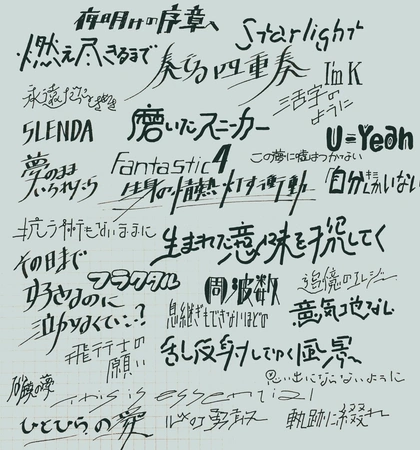 夜明けの序章へ
Starlight
燃え尽きるまで
奏でる四重奏
I'm K
永遠だったとき
三活字の
ように
SLENDA
磨いたスニーカー
U=Yeah
夢のまま
いられたら
Fantastic4
この夢に嘘はつかない
生身の情熱
灯す衝動
「自分」しかいない
抗う術もないままに
生まれた意味を探して
その日まで
フラクタル
好きなのに
泣かなくていい?
周波数
追憶のエレジー
息継ぎもできないほどの
意気地なし
飛行士の
願い
乱反射してゆく風景へ
砂漠の夢
思い出にならないように
This is essential
ひとひらの愛
ルックの勇者
軌跡に綴れ